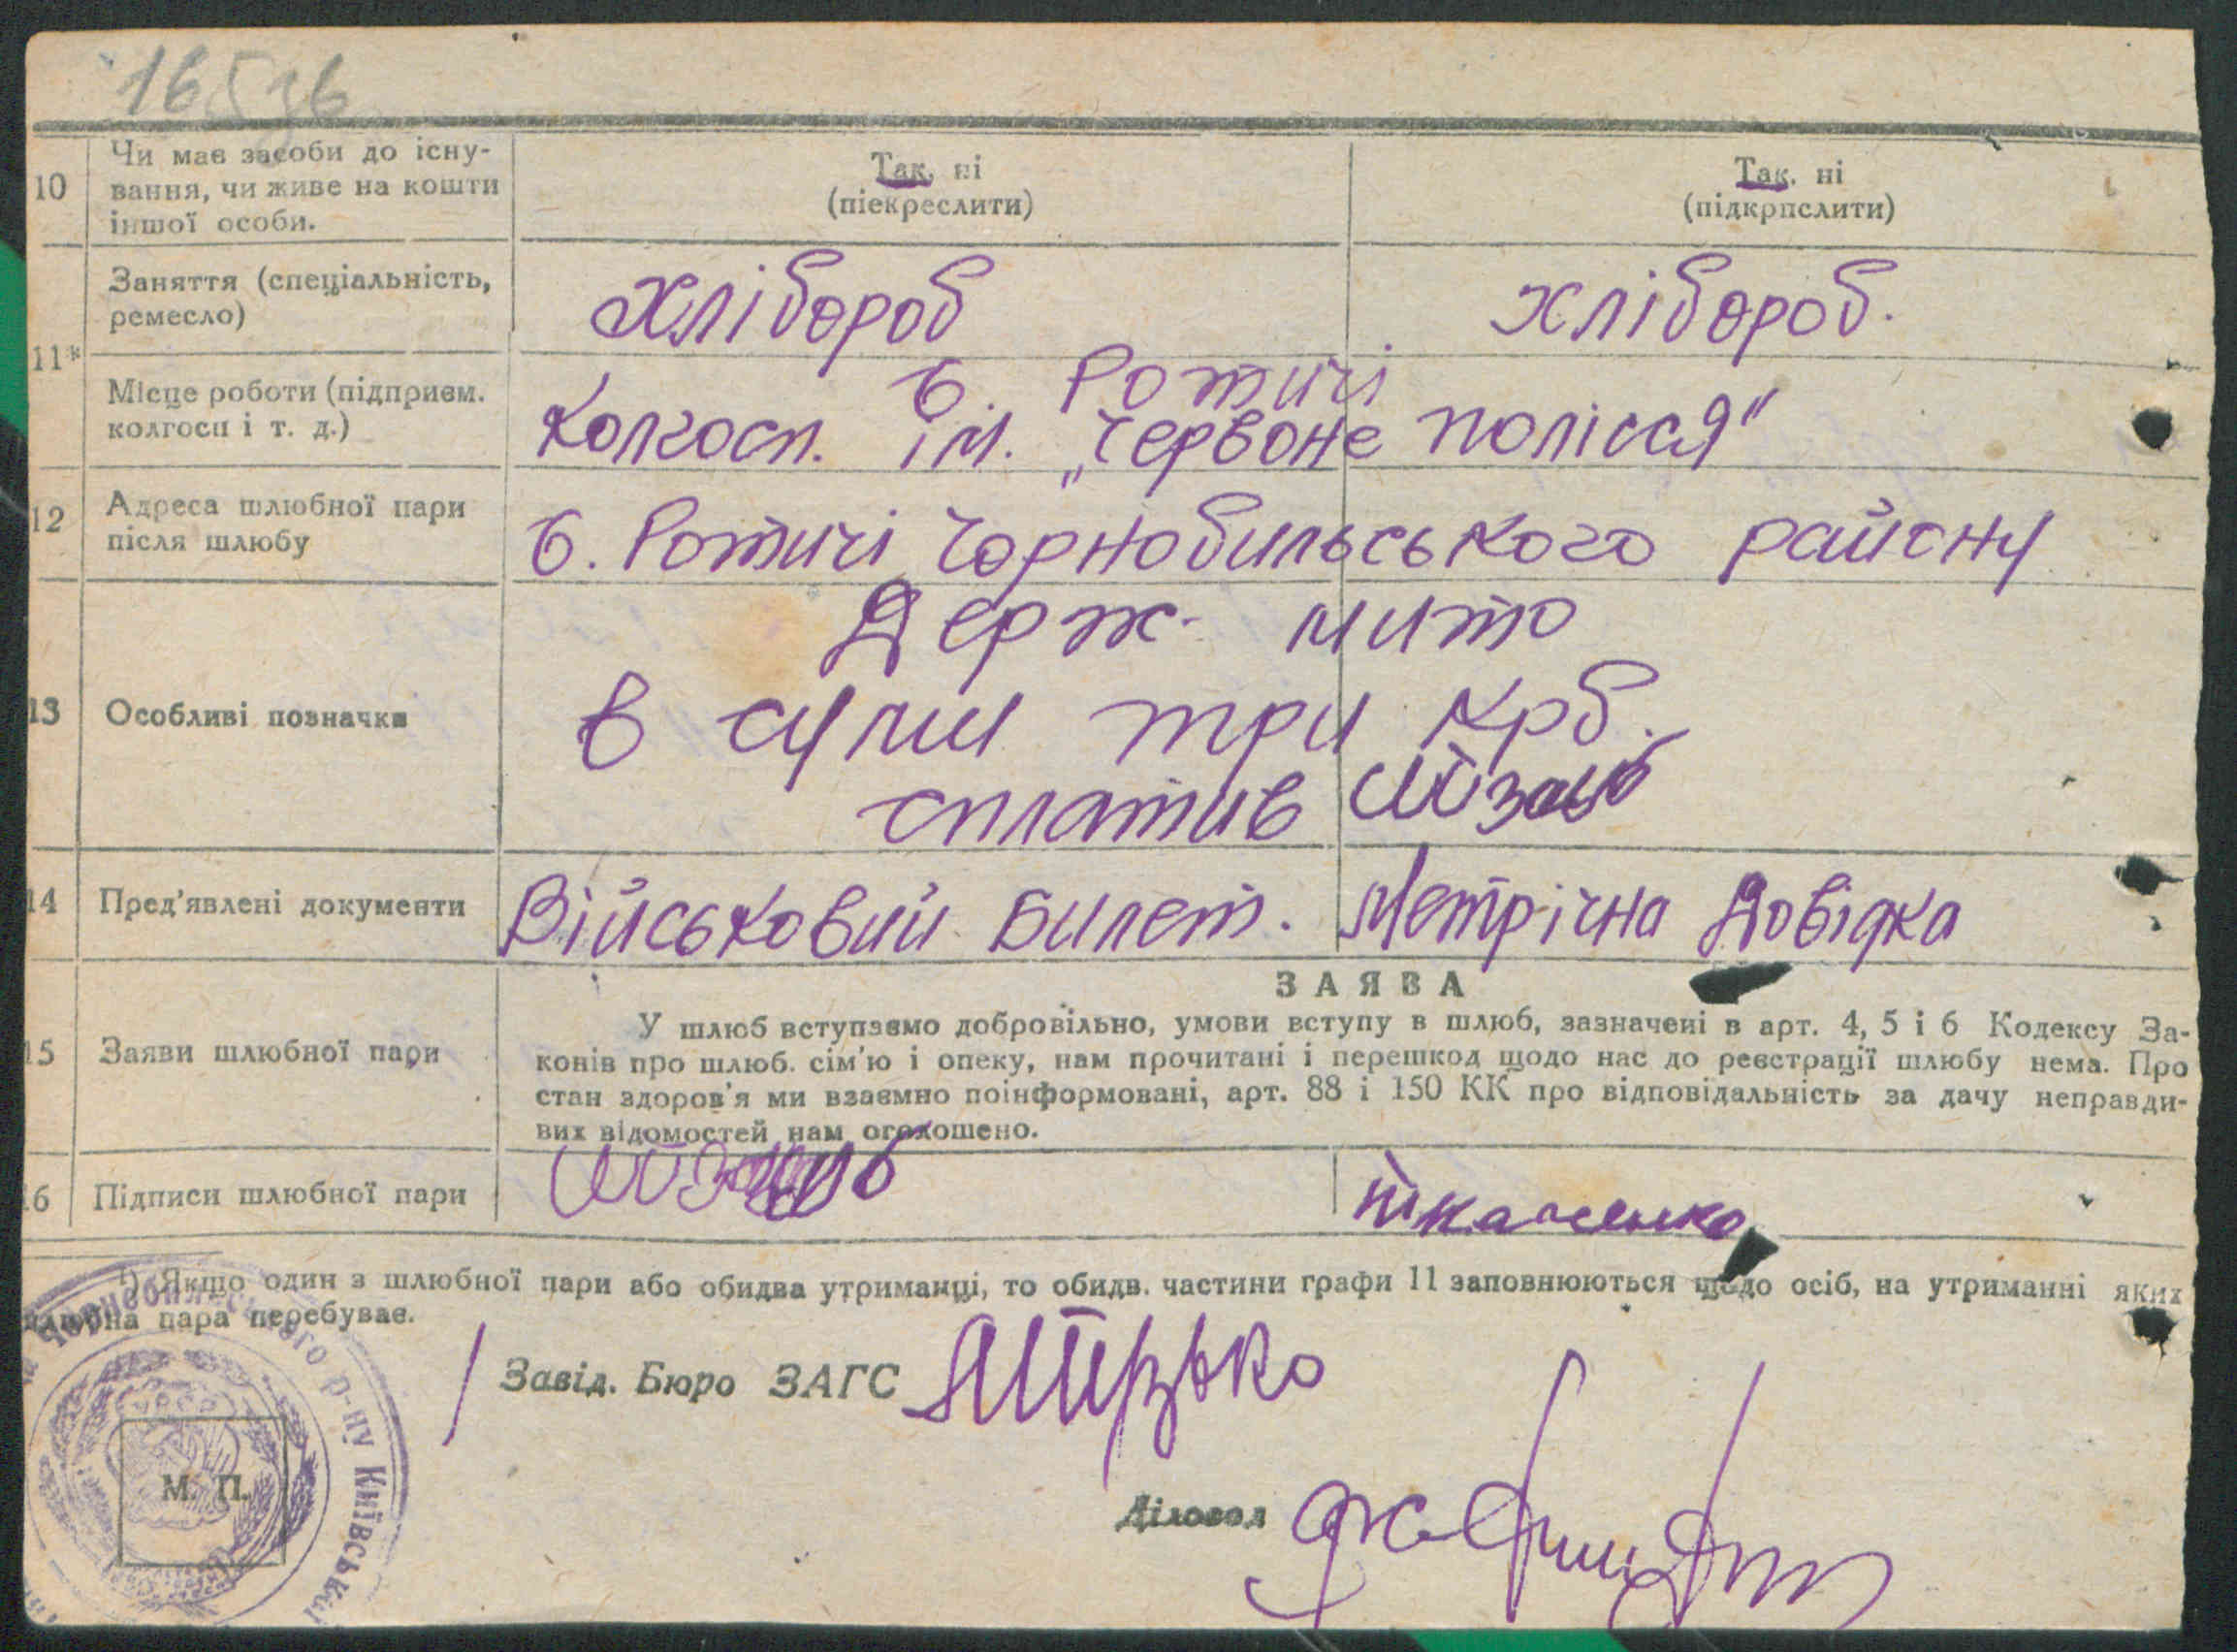 10 Чи має засоби до існу-
вання, чи живе на кошти
іншої особи.
Так, ні
(піекреслити)
Так. ні
(підкрпслити)
11*
Заняття (спеціальність,
ремесло)
Хлібороб
хлібороб.
Місце роботи (підприєм.
колгосп і т. д.)
б. Ротичі
Колгосп. ім. „Червоне полісся"
12 Адреса шлюбної пари
після шлюбу
б. Ротичі Чорнобильського району
13 Особливі позначки
Держ. мито
в суми три крб.
сплатив
14 Пред'явлені документи
Військовий Билет. Метрічна Довідка
15 Заяви шлюбної пари
ЗАЯВА
У шлюб вступаємо добровільно, умови вступу в шлюб, зазначені в арт. 4, 5 і 6 Кодексу За-
конів про шлюб. сім'ю і опеку, нам прочитані і перешкод щодо нас до реєстрації шлюбу нема. Про
стан здоров'я ми взаємно поінформовані, арт. 88 і 150 КК про відповідальність за дачу неправди-
вих відомостей нам оголошено.
16 Підписи шлюбної пари
Ткаченко
¹) Якщо один з шлюбної пари або обидва утриманці, то обидв. частини графи 11 заповнюються щодо осіб, на утриманні яких
шлюбна пара перебуває.
Завід. Бюро ЗАГС
М. П.
Чорнобильського р-ну Київської
Діловод